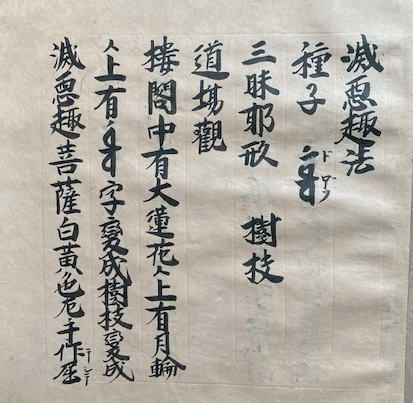 滅惡趣法
種子
三昧耶形 樹枝
道場觀
樓閣中有大蓮花〻上有月輪
〻上有字變成樹枝變成
滅惡趣菩薩白黃色手作